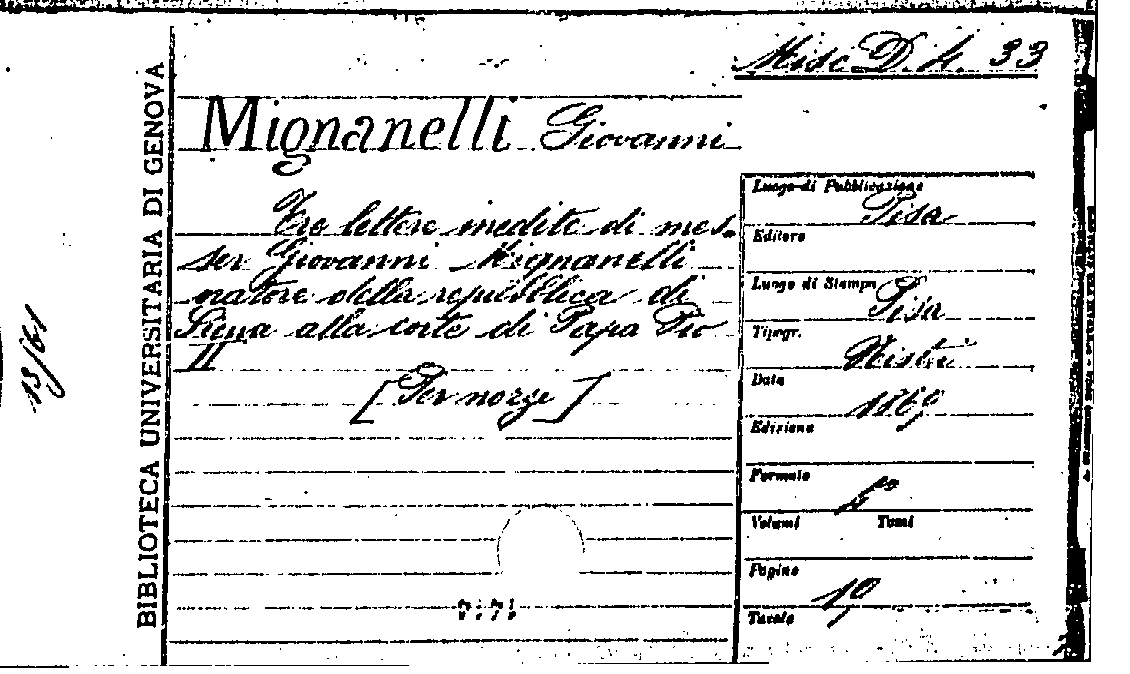 Misc. D. 4. 33
BIBLIOTECA UNIVERSITARIA DI GENOVA
13/61
Mignanelli Giovanni
Tre lettere inedite di mes.
ser Giovanni Mignanelli
natore della repubblica di
Siena alla corte di Papa Pio
II
[Per nozze]
Luogo di Pubblicazione
Pisa
Editore
Luogo di Stampa
Pisa
Tipogr.
Nistri
Data
1869
Edizione
Formato
Volumi Tomi
Pagine
19
Tavole